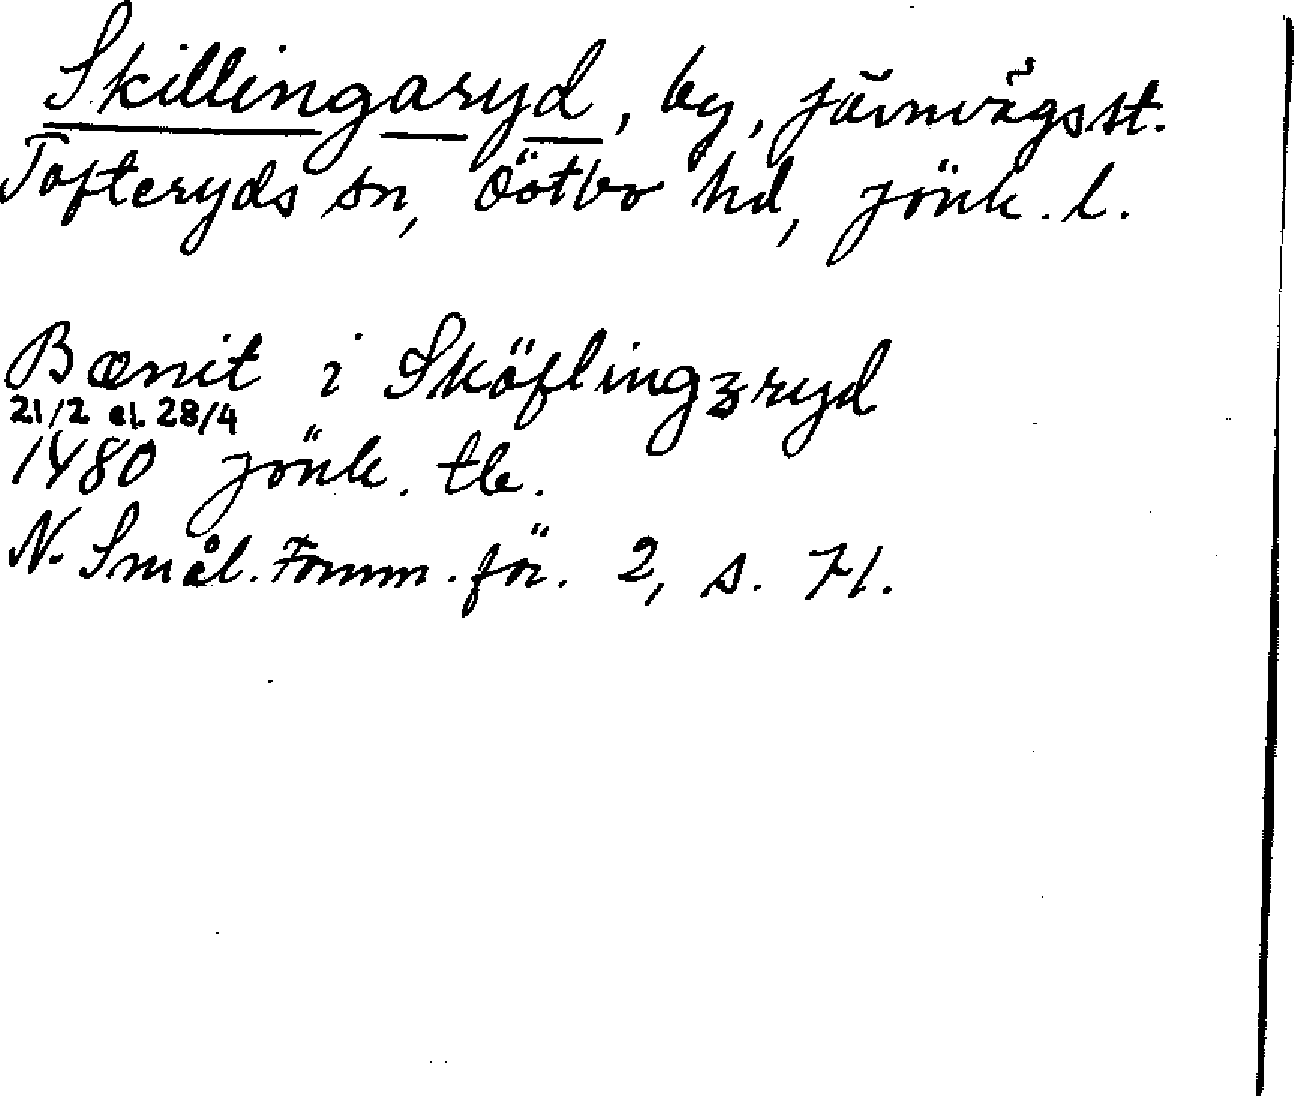 Skillingaryd, by, järnvägsst.
Tofteryds sn, Östbo hd, Jönk. l.
Bænit i Sköflingzryd
21/2 el. 28/4
1480 Jönk. tb.
N. Smål. Fornm. för. 2, s. 71.